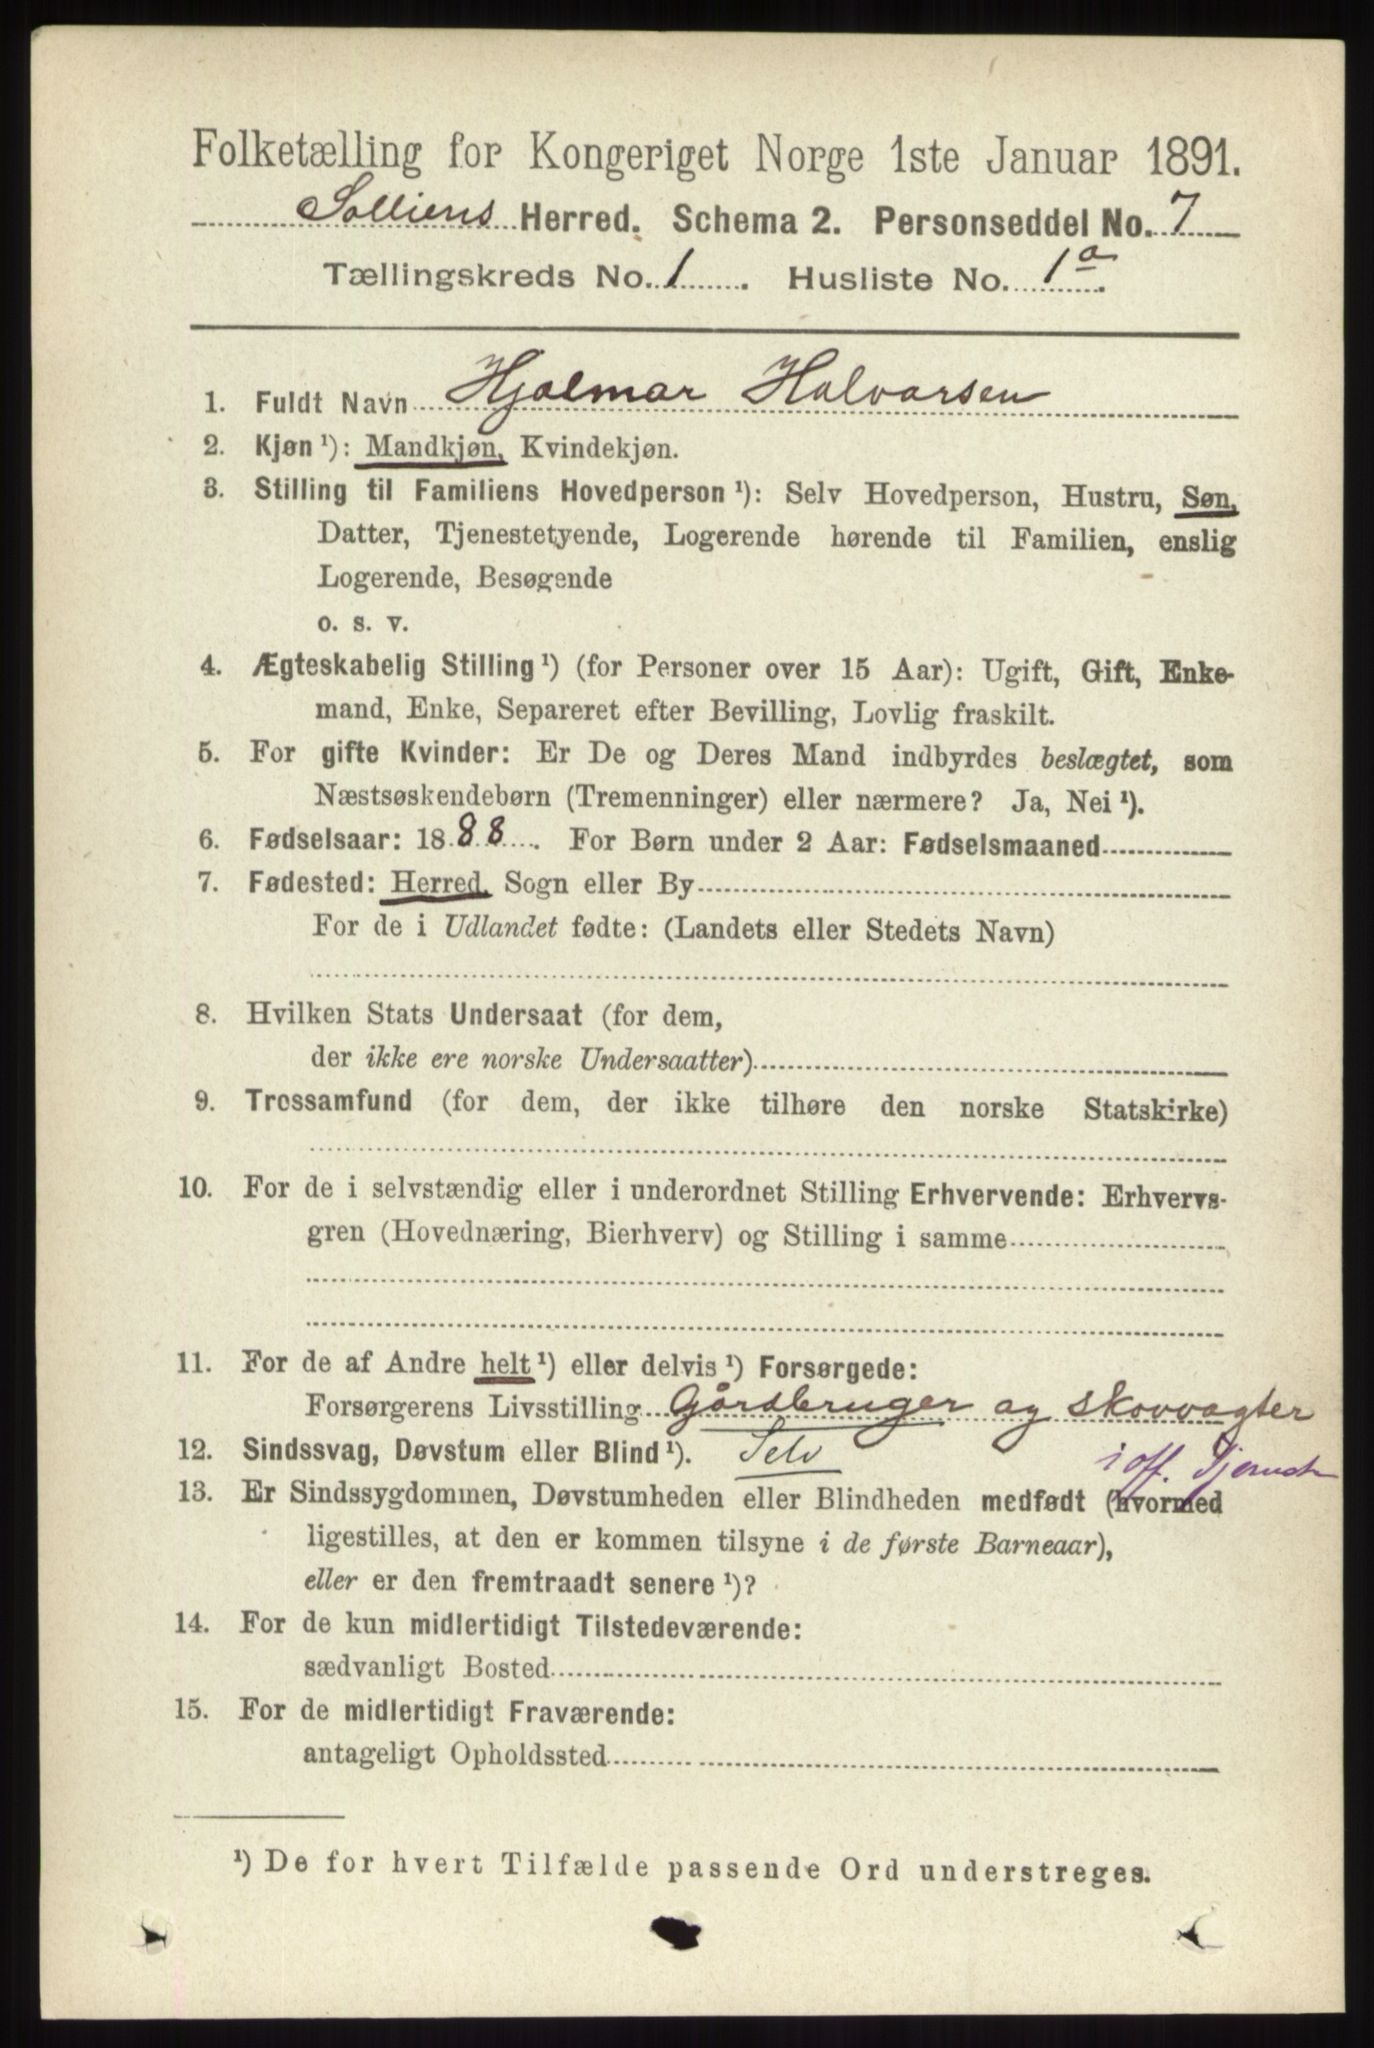 Folketælling for Kongeriget Norge 1ste Januar 1891.
Solliens Herred. Schema 2. Personseddel No. 7
Tællingskreds No. 1. Husliste No. 1a.
1. Fuldt Navn Hjalmar Halvorsen
2. Kjøn ¹): Mandkjøn, Kvindekjøn.
3. Stilling til Familiens Hovedperson ¹): Selv Hovedperson, Hustru, Søn,
Datter, Tjenestetyende, Logerende hørende til Familien, enslig
Logerende, Besøgende
o. s. v.
4. Ægteskabelig Stilling ¹) (for Personer over 15 Aar): Ugift, Gift, Enke-
mand, Enke, Separeret efter Bevilling, Lovlig fraskilt.
5. For gifte Kvinder: Er De og Deres Mand indbyrdes beslægtet, som
Næstsøskendebørn (Tremenninger) eller nærmere? Ja, Nei ¹).
6. Fødselsaar: 1888. For Børn under 2 Aar: Fødselsmaaned
7. Fødested: Herred, Sogn eller By
For de i Udlandet fødte: (Landets eller Stedets Navn)
8. Hvilken Stats Undersaat (for dem,
der ikke ere norske Undersaatter)
9. Trossamfund (for dem, der ikke tilhøre den norske Statskirke)
10. For de i selvstændig eller i underordnet Stilling Erhvervende: Erhvervs-
gren (Hovednæring, Bierhverv) og Stilling i samme
11. For de af Andre helt ¹) eller delvis ¹) Forsørgede:
Forsørgerens Livsstilling Gårdbruger og skovvogter
12. Sindssvag, Døvstum eller Blind ¹). Selv i off. Tjeneste
13. Er Sindssygdommen, Døvstumheden eller Blindheden medfødt (hvormed
ligestilles, at den er kommen tilsyne i de første Barneaar),
eller er den fremtraadt senere ¹)?
14. For de kun midlertidigt Tilstedeværende:
sædvanligt Bosted
15. For de midlertidigt Fraværende:
antageligt Opholdssted
¹) De for hvert Tilfælde passende Ord understreges.